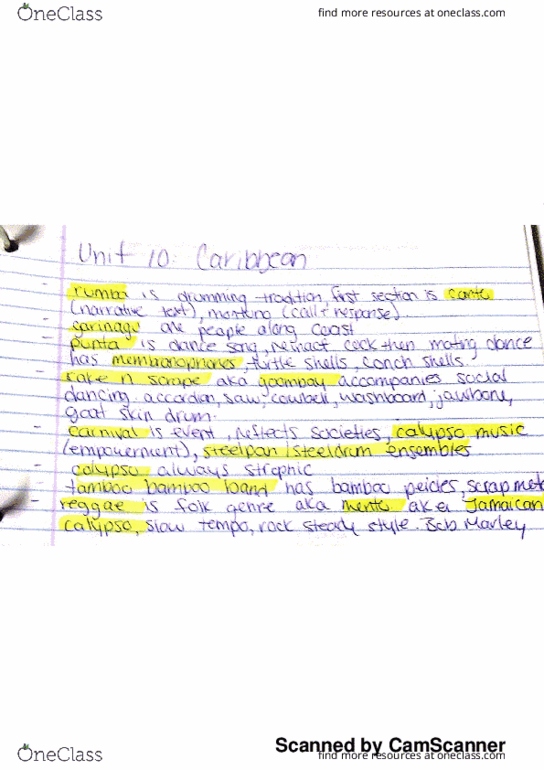 OneClass
find more resources at oneclass.com
Unit 10: Caribbean
- rumba is drumming tradition, first section is canto
(narrative text), montuno (call + response).
- garinagu are people along coast
- punta is dance song, reinact cock then mating dance
has membranophones, turtle shells, conch shells.
- rake n scrape aka goombay accompanies social
dancing accordian, saw, cowbell, washboard, jawbone,
goat skin drum.
- carnival is event, reflects societies, calypso music
(empowerment), steelpan/steeldrum ensembles
- calypso always strophic
- tamboo bamboo band has bamboo peices, scrap met
- reggae is folk genre aka mento aka Jamaican
calypso, slow tempo, rock steady style. Bob Marley
Scanned by CamScanner
OneClass
find more resources at oneclass.com